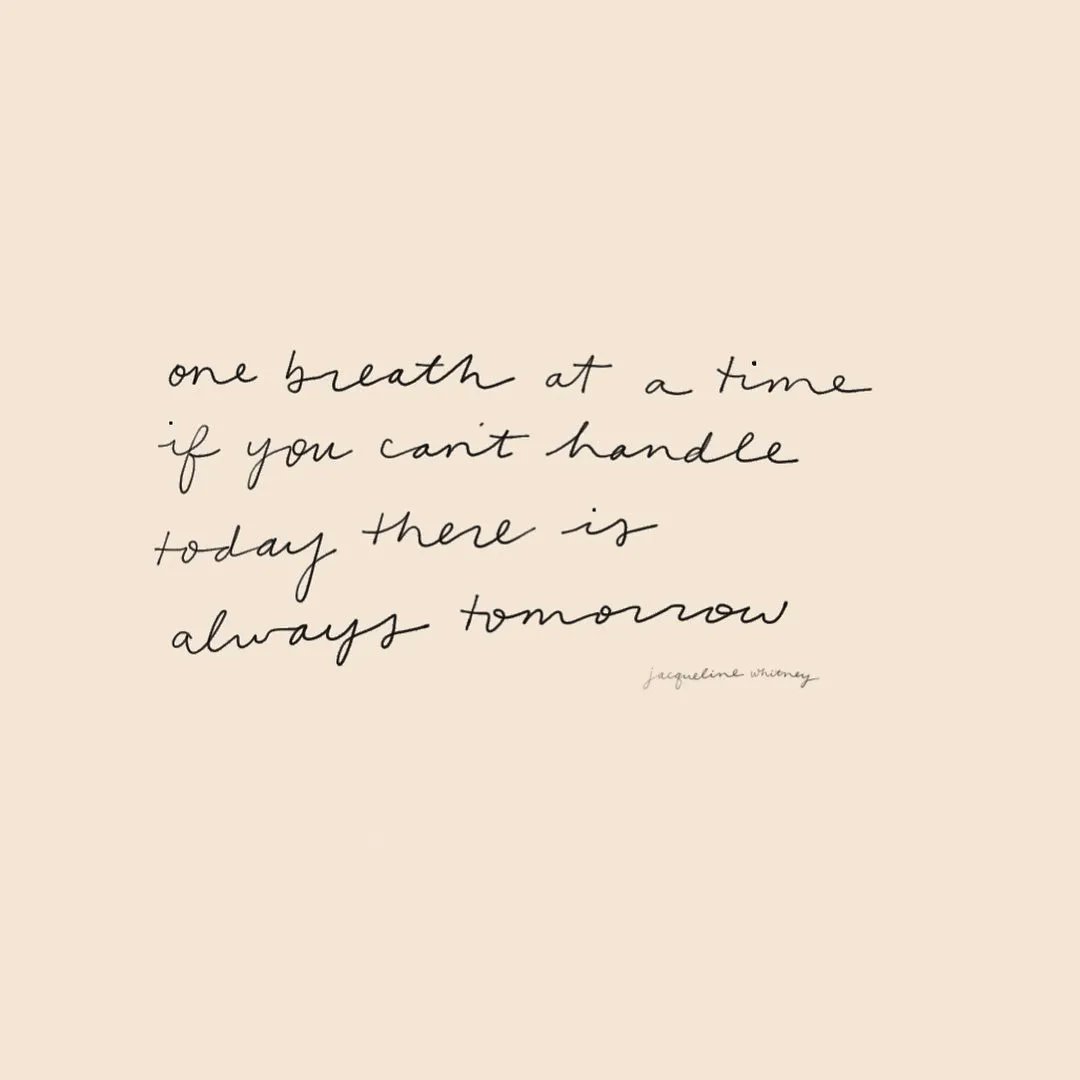 one breath at a time
if you can't handle
today there is
always tomorrow
jacqueline whitney